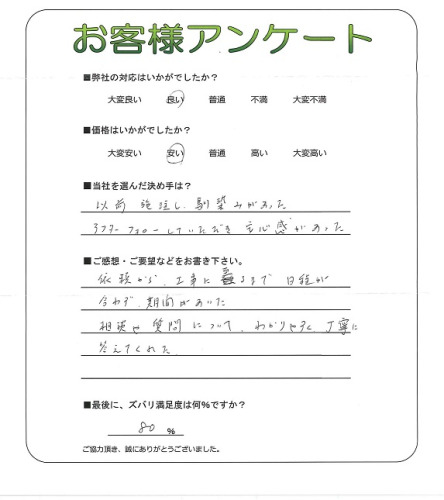 お客様アンケート
■弊社の対応はいかがでしたか？
大変良い 良い 普通 不満 大変不満
■価格はいかがでしたか？
大変安い 安い 普通 高い 大変高い
■当社を選んだ決め手は？
以前 施工し、馴染みがあった
アフターフォローしていただき 安心感があった
■ご感想・ご要望などをお書き下さい。
依頼から、工事に至るまで 日程が
合わず、期間があいた
相談や質問について、わかりやすく、丁寧に
答えてくれた。
■最後に、ズバリ満足度は何％ですか？
80 ％
ご協力頂き、誠にありがとうございました。